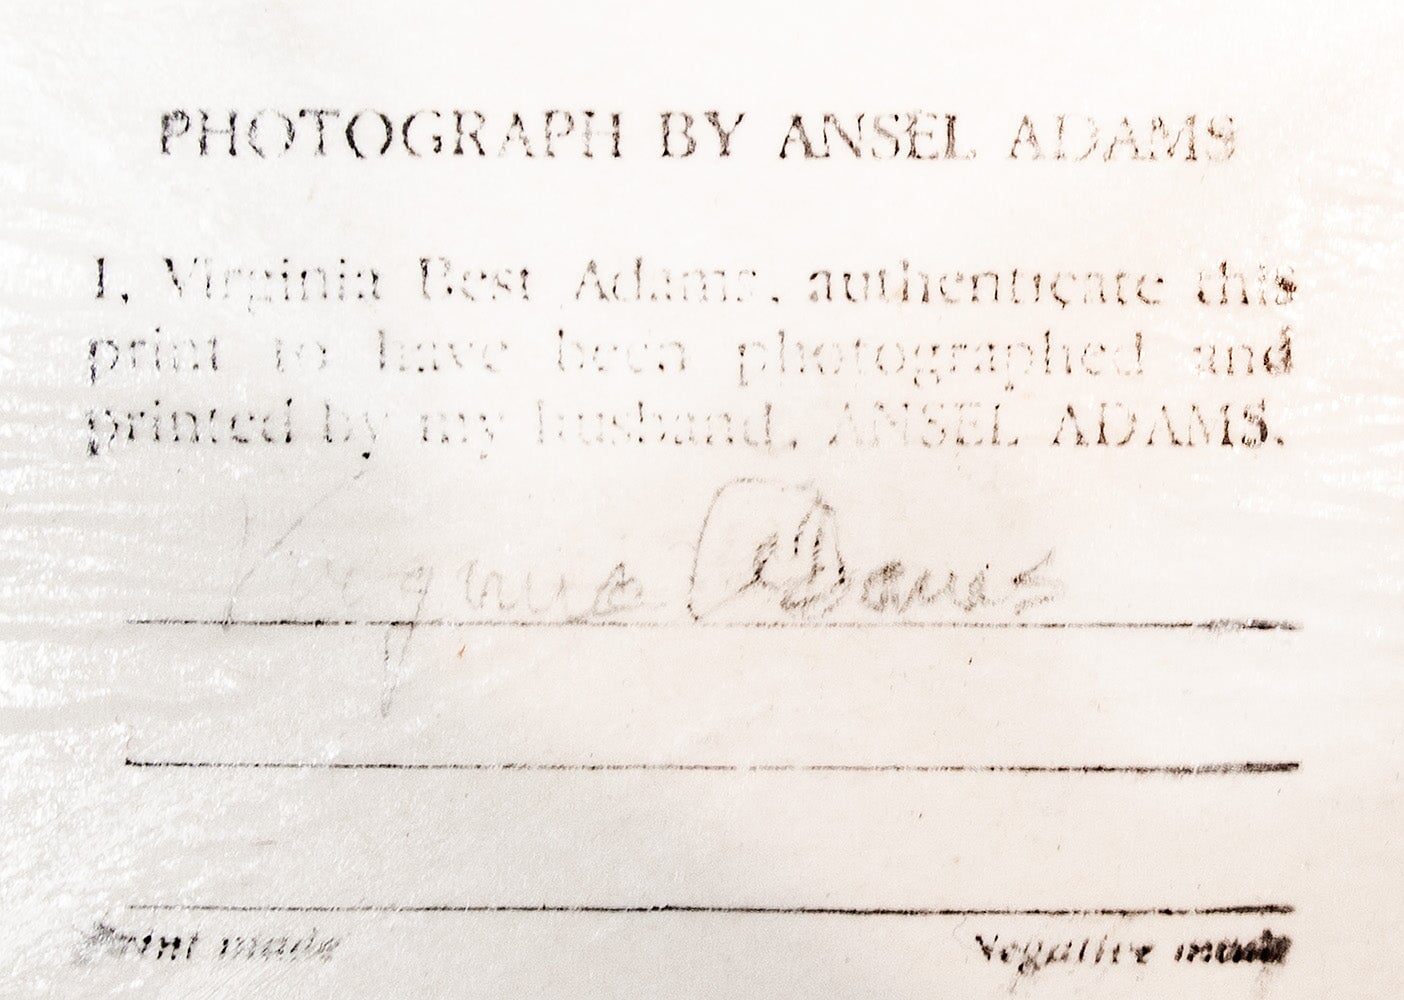 PHOTOGRAPH BY ANSEL ADAMS
I, Virginia Best Adams, authenticate this
print to have been photographed and
printed by my husband, ANSEL ADAMS.
Virginia Adams
Print made Negative made